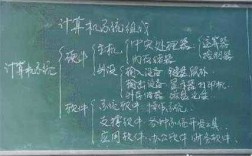 计算机系统组成
计算机系统
硬件
主机
中央处理器
运算器
控制器
内存储器
外设
输入设备 键盘 鼠标
输出设备 显示器 打印机
外存储器
软件
系统软件 操作系统
支撑软件
应用软件 办公软件